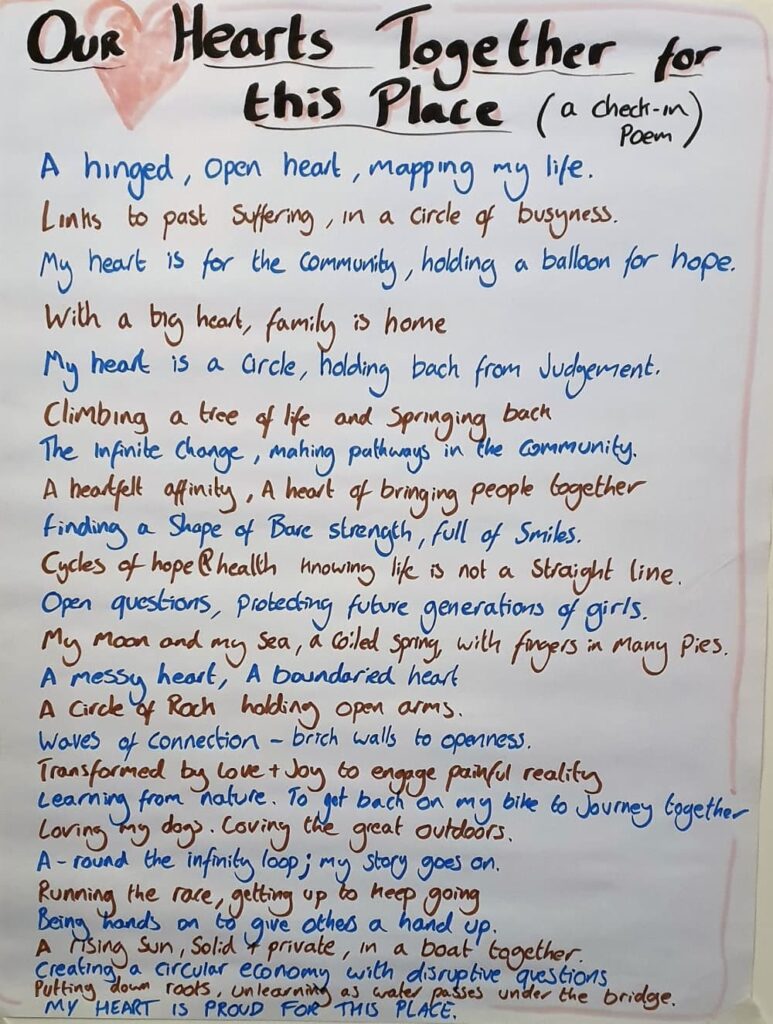 Our Hearts Together for
this Place (a check-in
Poem)
A hinged, open heart, mapping my life.
Links to past Suffering, in a circle of busyness.
My heart is for the community, holding a balloon for hope.
With a big heart, family is home
My heart is a Circle, holding back from Judgement.
Climbing a tree of life and Springing back
The Infinite Change, making pathways in the community.
A heartfelt affinity, A heart of bringing people together
Finding a Shape of Bare strength, full of Smiles.
Cycles of hope & health knowing life is not a Straight line.
Open questions, protecting future generations of girls.
My Moon and my Sea, a Coiled Spring, with fingers in Many Pies.
A messy heart, A boundaried heart
A Circle of Rock holding open arms.
Waves of Connection - brick walls to openness.
Transformed by Love + Joy to engage painful reality
Learning from nature. To get back on my bike to Journey together
Loving my dogs. Loving the great outdoors.
A-round the infinity loop; my story goes on.
Running the race, getting up to keep going
Being hands on to give others a hand up.
A rising Sun, Solid + private, in a boat together.
Creating a circular economy with disruptive questions
Putting down roots, unlearning as water passes under the bridge.
MY HEART IS PROUD FOR THIS PLACE.